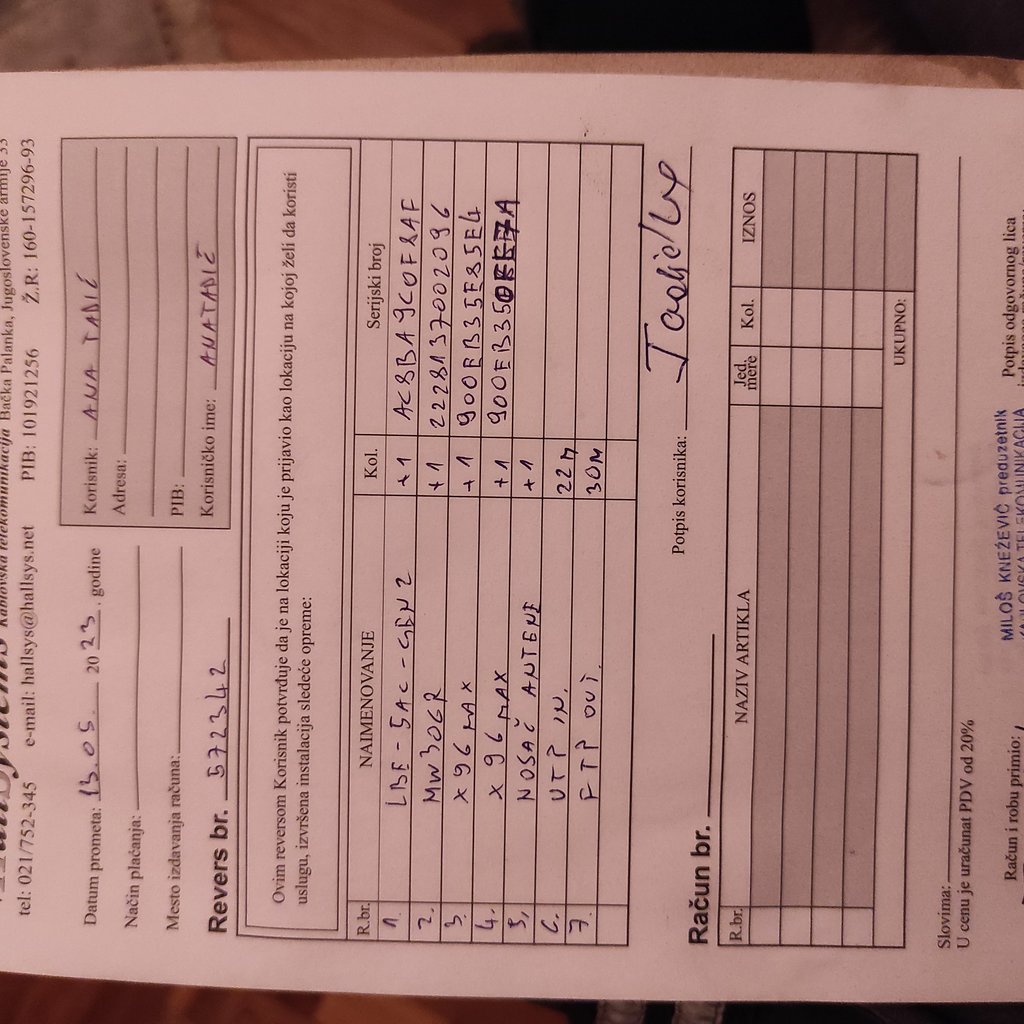 Kablovska telekomunikacija Bačka Palanka, Jugoslovenske armije 33
tel: 021/752-345 e-mail: hallsys@hallsys.net PIB: 101921256 Ž.R: 160-157296-93
Datum prometa: 13.05. 2023. godine
Način plaćanja:
Mesto izdavanja računa:
Revers br. 572342
Korisnik: ANA TADIĆ
Adresa:
PIB:
Korisničko ime: ANATADIČ
Ovim reversom Korisnik potvrđuje da je na lokaciji koju je prijavio kao lokaciju na kojoj želi da koristi
uslugu, izvršena instalacija sledeće opreme:
R.br. NAIMENOVANJE Kol. Serijski broj
1. LBE-5AC-GEN2 +1 AC8BA9C0F8AF
2. MW30GR +1 2228137002096
3. X96 MAX +1 900EB35F85E4
4. X96 MAX +1
5, NOSAČ ANTENE +1
6. UTP IN. 22M
7. FTP OUT. 30M
Potpis korisnika:
Račun br.
R.br. NAZIV ARTIKLA Jed. mere Kol. IZNOS
UKUPNO:
Slovima:
U cenu je uračunat PDV od 20%
Račun i robu primio:
MILOŠ KNEŽEVIĆ preduzetnik
KABLOVSKA TELEKOMUNIKACIJA
Potpis odgovornog lica